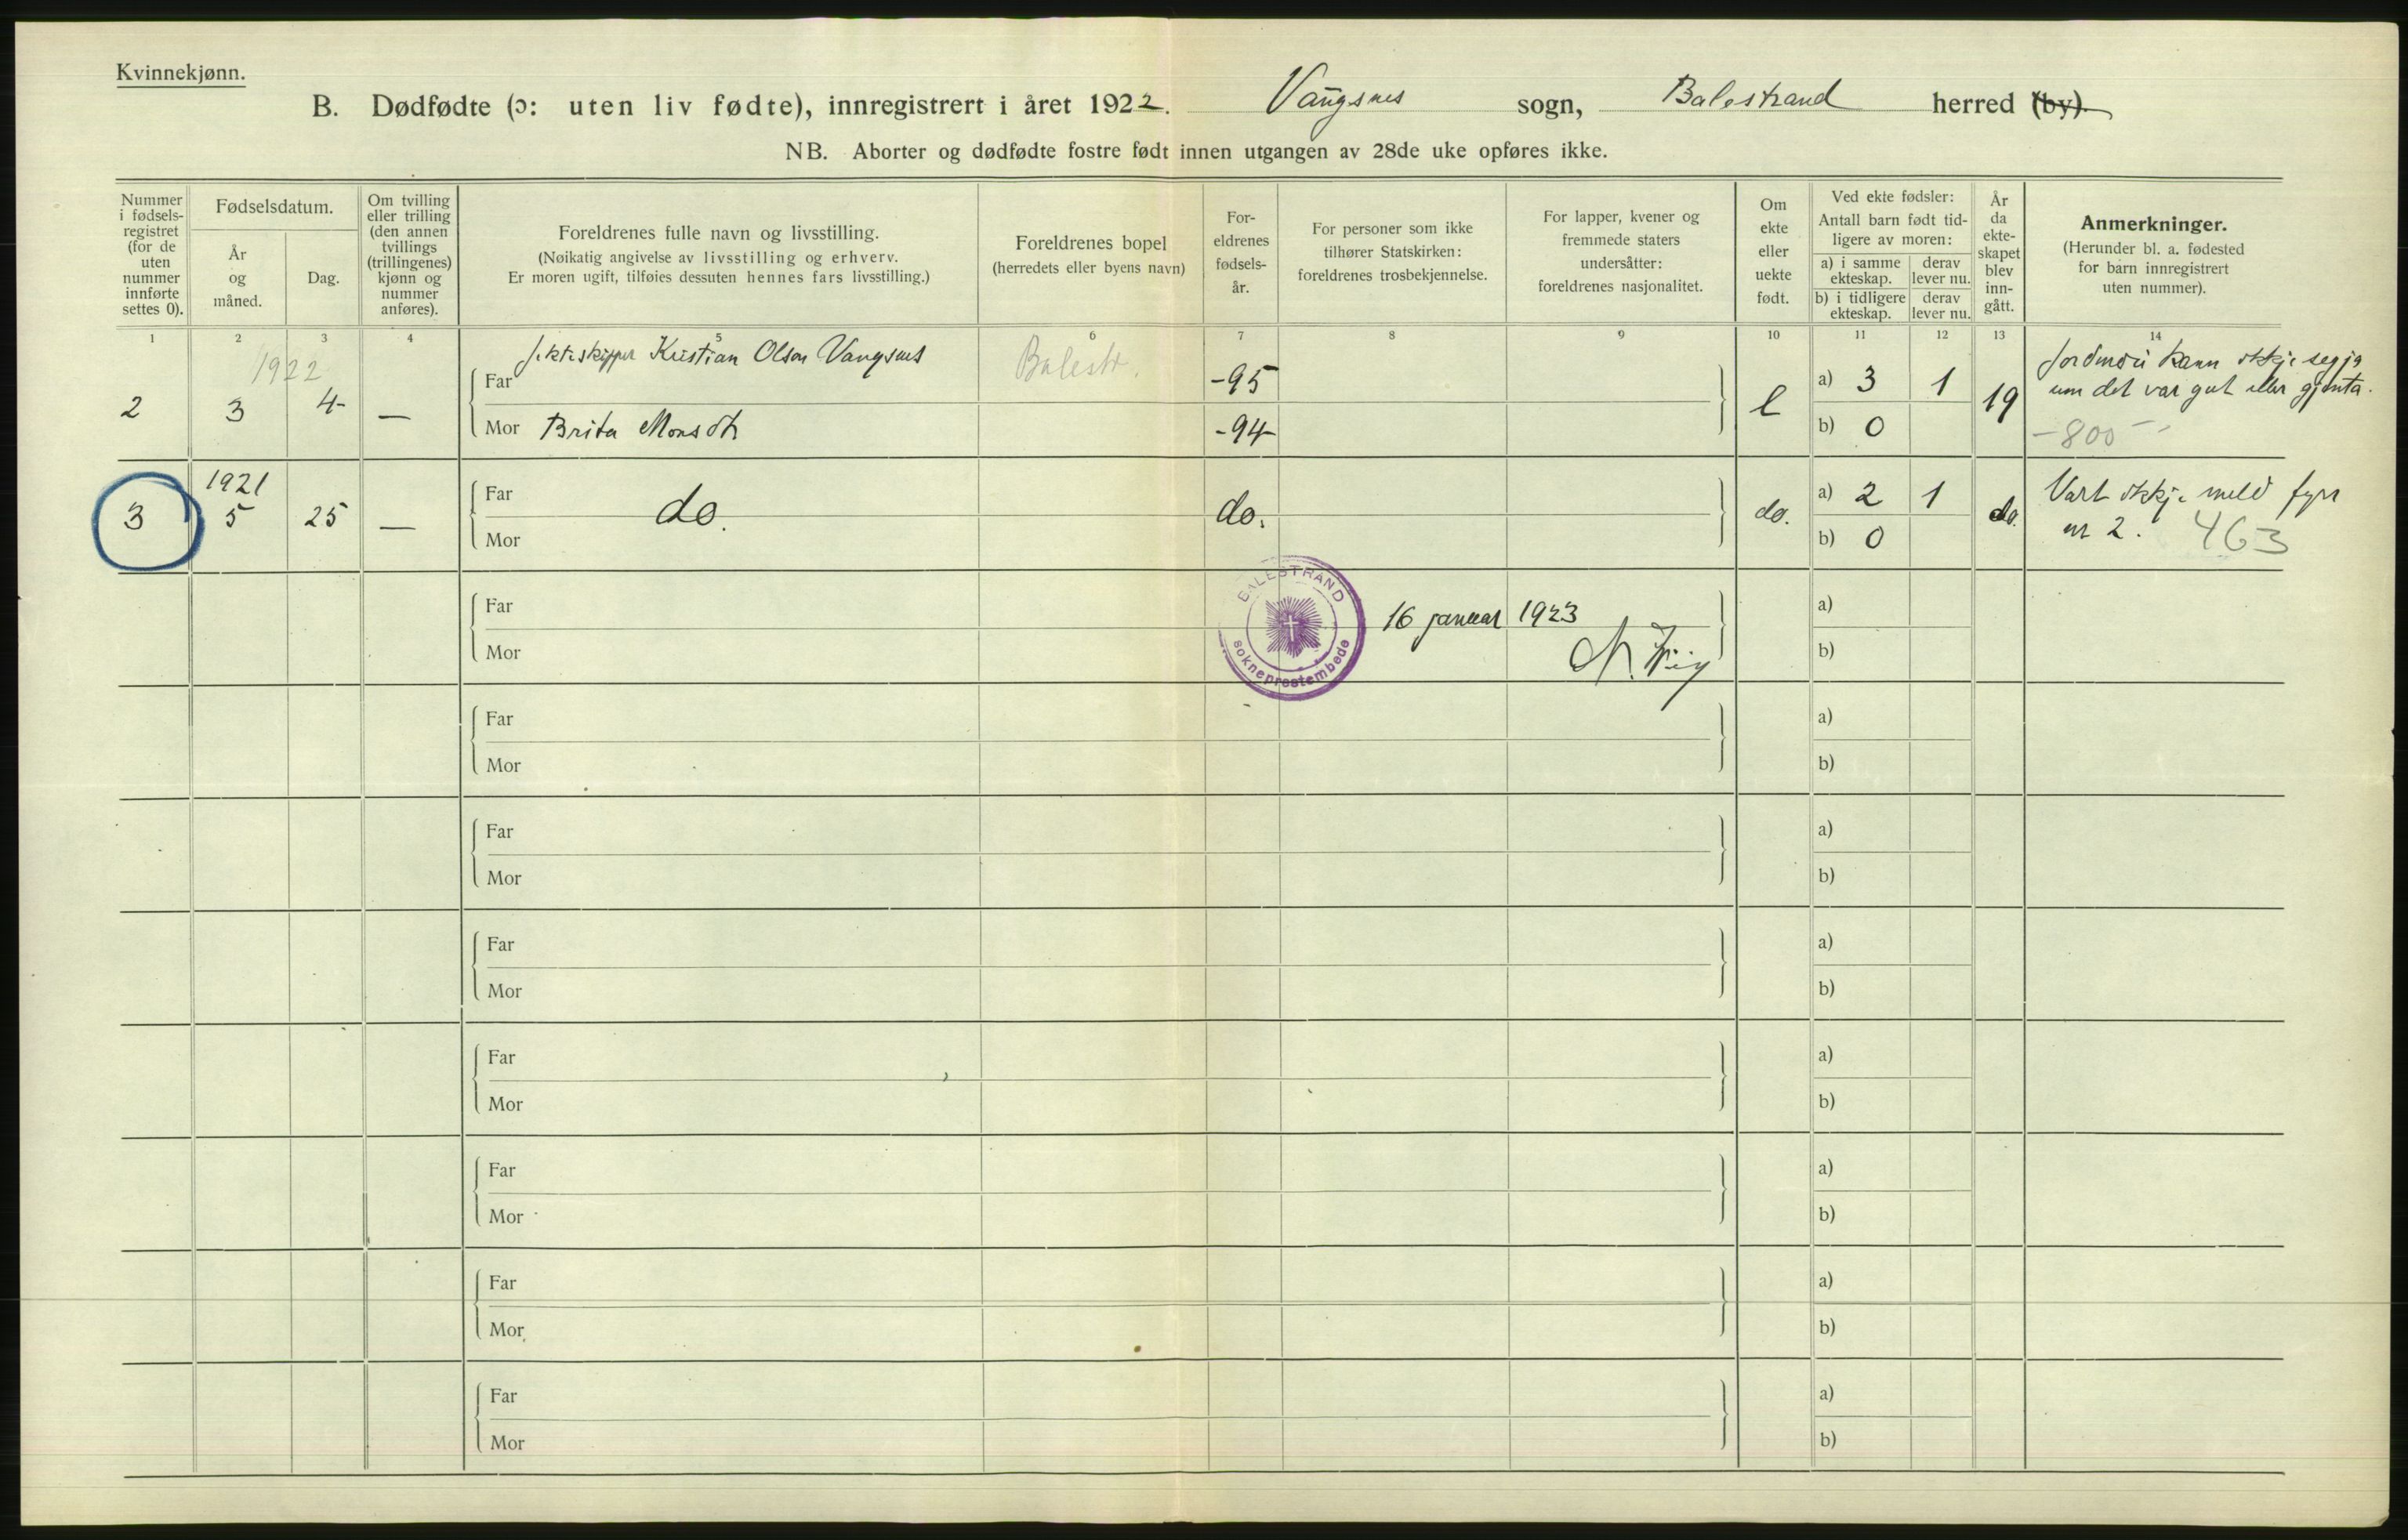 Kvinnekjønn.
B. Dødfødte (ɔ: uten liv fødte), innregistrert i året 1922. Vangsnes sogn, Balestrand herred (by).
NB. Aborter og dødfødte fostre født innen utgangen av 28de uke opføres ikke.
Nummer i fødsels-registret (for de uten nummer innførte settes 0).
Fødselsdatum.
År og måned.
Dag.
Om tvilling eller trilling (den annen tvillings (trillingenes) kjønn og nummer anføres).
Foreldrenes fulle navn og livsstilling.
(Nøikatig angivelse av livsstilling og erhverv.
Er moren ugift, tilføies dessuten hennes fars livsstilling.)
Foreldrenes bopel
(herredets eller byens navn)
For-eldrenes fødsels-år.
For personer som ikke tilhører Statskirken: foreldrenes trosbekjennelse.
For lapper, kvener og fremmede staters undersåtter: foreldrenes nasjonalitet.
Om ekte eller uekte født.
Ved ekte fødsler:
Antall barn født tid-ligere av moren:
a) i samme ekteskap. derav lever nu.
b) i tidligere ekteskap. derav lever nu.
År da ekte-skapet blev inn-gått.
Anmerkninger.
(Herunder bl. a. fødested for barn innregistrert uten nummer).
1 2 3 4 5 6 7 8 9 10 11 12 13 14
1922
2 3 4 —
Far Jekteskipper Kristian Olson Vangsnes Balestr. -95
Mor Brita Monsdtr -94
e
a) 3 1
b) 0
19
Jordmori kann ikkje segja
um det var gut eller gjenta.
-800-
1921
3 5 25 —
Far
do. do. do.
Mor
a) 2 1
b) 0
do.
Vart ikkje meld fyrr
nr 2. 463
BALESTRAND
sokneprestembede
16 januar 1923
Far a)
Mor b)
Far a)
Mor b)
Far a)
Mor b)
Far a)
Mor b)
Far a)
Mor b)
Far a)
Mor b)
Far a)
Mor b)
Far a)
Mor b)